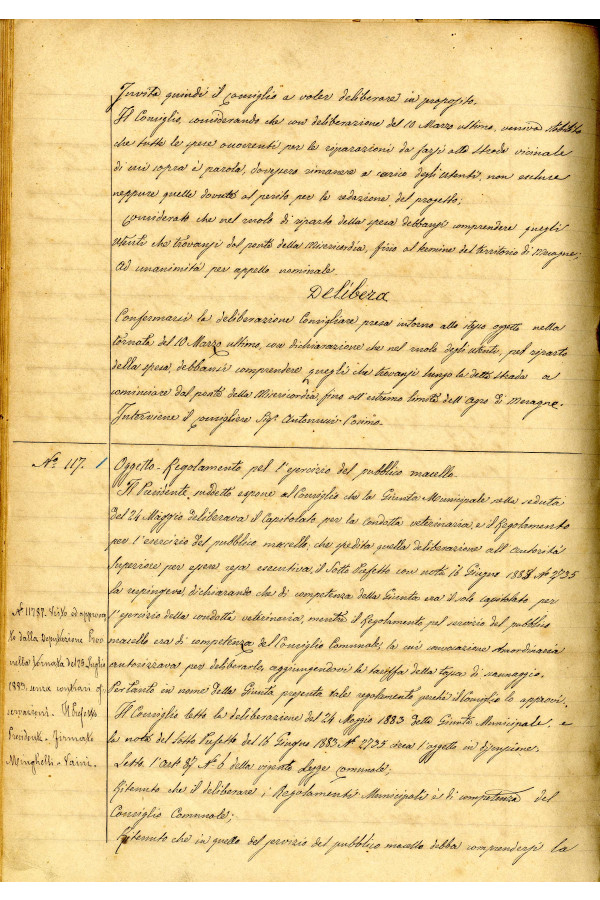 Invita quindi il Consiglio a voler deliberare in proposito.
Il Consiglio, considerando che con deliberazione del 10 Marzo ultimo, veniva stabilito
che tutte le spese occorrenti per le riparazioni da farsi alla strada vicinale
di cui sopra è parola, dovessero rimanere a carico degli utenti, non escluse
neppure quelle dovute al perito per la redazione del progetto;
Considerato che nel ruolo di riparto della spesa debbansi comprendere quegli
utenti che trovansi dal ponte della Misericordia, fino al termine del territorio di Mesagne;
Ad unanimità per appello nominale
Delibera
Confermarsi la deliberazione Consigliare presa intorno allo stesso oggetto nella
tornata del 10 Marzo ultimo, con dichiarazione che nel ruolo degli utenti, pel riparto
della spesa, debbansi comprendere quegli che trovansi lungo la detta strada a
cominciare dal ponte della Misericordia, fino all'estremo limite dell'Agro di Mesagne.
Interviene il consigliere Sigr Antonucci Cosimo.
No 117.
Oggetto - Regolamento pel l'esercizio del pubblico macello.
Il Presidente suddetto espone al Consiglio che la Giunta Municipale nella seduta
del 24 Maggio deliberava il Capitolato per la condotta veterinaria, e il Regolamento
per l'esercizio del pubblico macello; che spedita quella deliberazione all'autorità
Superiore per essere resa esecutiva, il Sotto Prefetto con nota 16 Giugno 1883 No 2735
la respingeva, dichiarando che di competenza della Giunta era il solo capitolato per
l'esercizio della condotta veterinaria, mentre il Regolamento pel servizio del pubblico
macello era di competenza del Consiglio Comunale, la cui convocazione straordinaria
autorizzava per deliberarlo, aggiungendovi la tariffa della tassa di
Pertanto in nome della Giunta presenta tale regolamento perchè il Consiglio lo approvi.
Il Consiglio letta la deliberazione del 24 Maggio 1883 della Giunta Municipale, e
la nota del Sotto Prefetto del 16 Giugno 1883 No 2735 circa l'oggetto in discussione.
Letto l'art 87 No 6 della vigente Legge Comunale;
Ritenuto che il deliberare i Regolamenti Municipali è di competenza del
Consiglio Comunale;
Ritenuto che in quello del servizio del pubblico macello debba comprendersi la
No 11787. Visto ed approva-
to dalla Deputazione Prov.
nella tornata del 23 Luglio
1883, senza contrari os-
servazioni - Il Prefetto
Presidente - Firmato
Minghelli - Vaini -